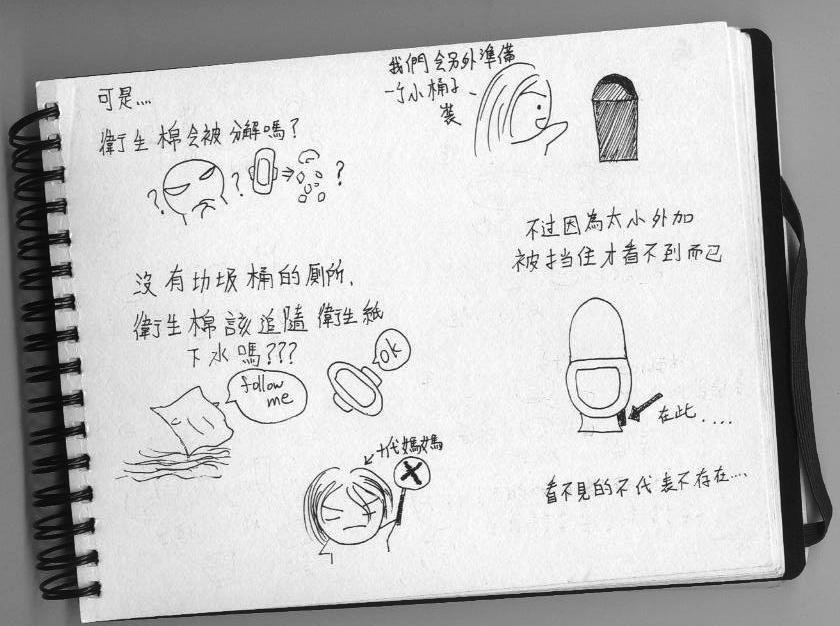 可是....
衛生棉会被分解嗎?
? ? ?
沒有垃圾桶的厠所,
衛生棉該追隨衛生紙
下水嗎???
follow
me
ok
代媽媽
我們会另外準備
一个小桶子
裝
不过因為太小外加
被挡住才看不到而已
在此....
看不見的不代表不存在....